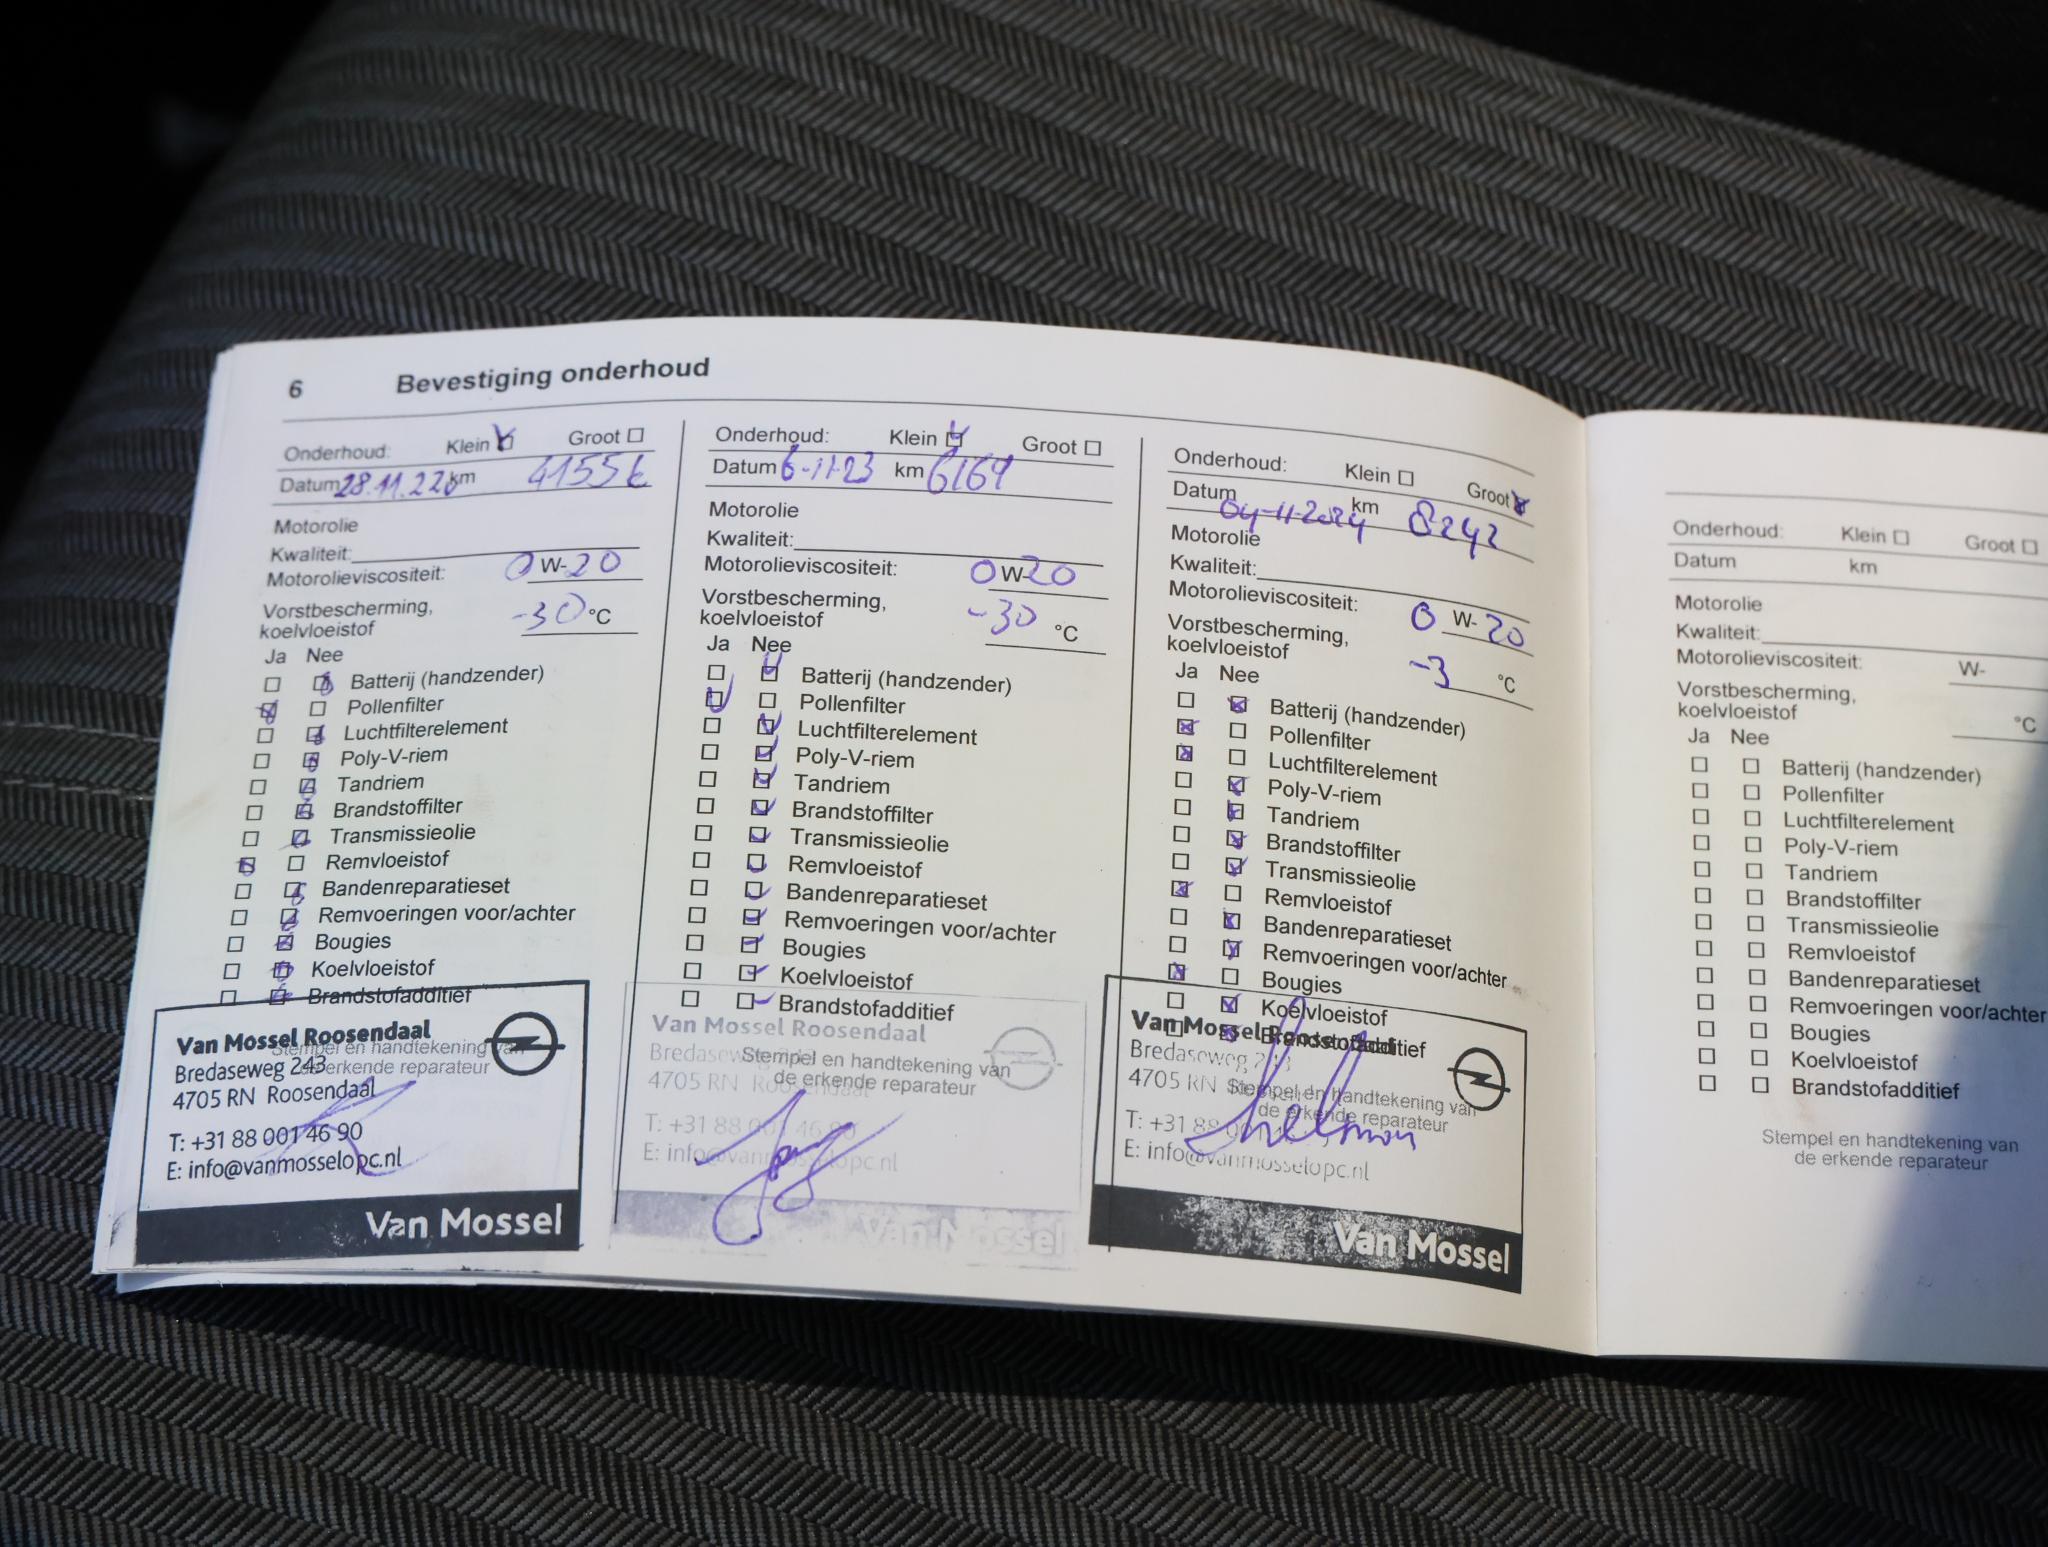 6 Bevestiging onderhoud
Onderhoud: Klein Groot
Datum 28.11.22 km
Motorolie
Kwaliteit:
Motorolieviscositeit: 0 W-20
Vorstbescherming,
koelvloeistof -30 °C
Ja Nee
Batterij (handzender)
Pollenfilter
Luchtfilterelement
Poly-V-riem
Tandriem
Brandstoffilter
Transmissieolie
Remvloeistof
Bandenreparatieset
Remvoeringen voor/achter
Bougies
Koelvloeistof
Brandstofadditief
Van Mossel Roosendaal
Stempel en handtekening van
Bredaseweg 243
de erkende reparateur
4705 RN Roosendaal
T: +31 88 001 46 90
E: info@vanmosselopc.nl
Van Mossel
Onderhoud: Klein Groot
Datum 6-11-23 km 6169
Motorolie
Kwaliteit:
Motorolieviscositeit: 0 W-20
Vorstbescherming,
koelvloeistof -30 °C
Ja Nee
Batterij (handzender)
Pollenfilter
Luchtfilterelement
Poly-V-riem
Tandriem
Brandstoffilter
Transmissieolie
Remvloeistof
Bandenreparatieset
Remvoeringen voor/achter
Bougies
Koelvloeistof
Brandstofadditief
Van Mossel Roosendaal
Bredaseweg
Stempel en handtekening van
4705 RN Roosendaal
de erkende reparateur
T: +31 88 001 46 90
E: info@vanmosselopc.nl
Van Mossel
Onderhoud: Klein Groot
Datum 04-11-2024 km 8242
Motorolie
Kwaliteit:
Motorolieviscositeit: 0 W-20
Vorstbescherming,
koelvloeistof -3 °C
Ja Nee
Batterij (handzender)
Pollenfilter
Luchtfilterelement
Poly-V-riem
Tandriem
Brandstoffilter
Transmissieolie
Remvloeistof
Bandenreparatieset
Remvoeringen voor/achter
Bougies
Koelvloeistof
Brandstofadditief
Van Mossel Roosendaal
Bredaseweg 243
4705 RN
Stempel en handtekening van
de erkende reparateur
T: +31 88 001
E: info@vanmosselopc.nl
Van Mossel
Onderhoud: Klein Groot
Datum km
Motorolie
Kwaliteit:
Motorolieviscositeit: W-
Vorstbescherming,
koelvloeistof °C
Ja Nee
Batterij (handzender)
Pollenfilter
Luchtfilterelement
Poly-V-riem
Tandriem
Brandstoffilter
Transmissieolie
Remvloeistof
Bandenreparatieset
Remvoeringen voor/achter
Bougies
Koelvloeistof
Brandstofadditief
Stempel en handtekening van
de erkende reparateur